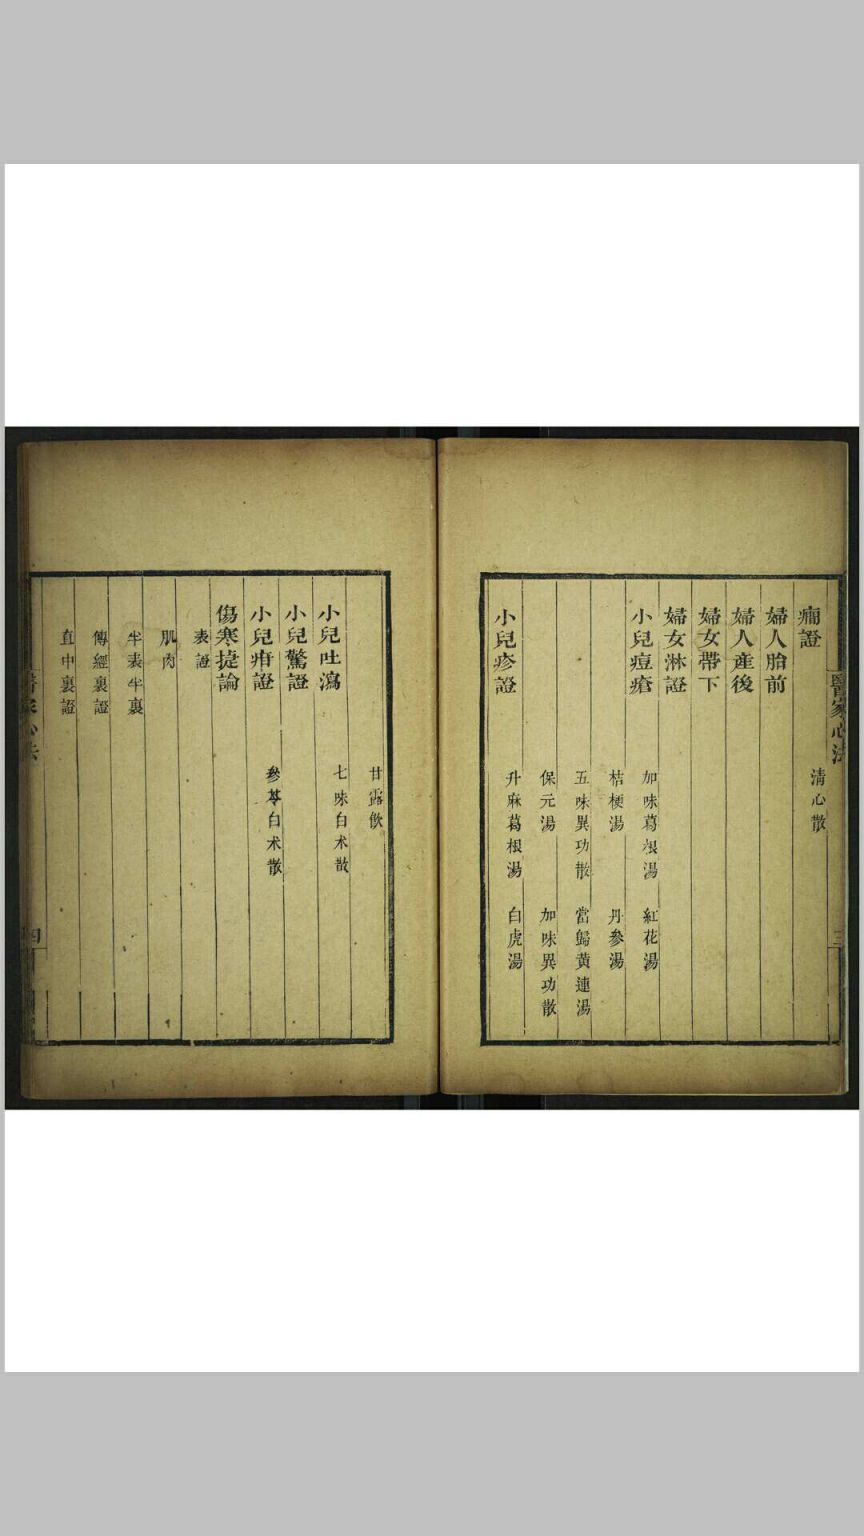 清心散
癇證
婦人胎前
婦人產後
婦女帶下
婦女淋證
加味葛根湯 紅花湯
小兒痘瘡
桔梗湯 丹參湯
五味異功散 當歸黃連湯
保元湯 加味異功散
升麻葛根湯 白虎湯
小兒疹證
醫家心法
三
甘露飲
七味白术散
小兒吐瀉
小兒驚證
參苓白术散
小兒疳證
傷寒捷論
表證
肌肉
半表半裏
傳經裏證
直中裏證
醫家心法
四